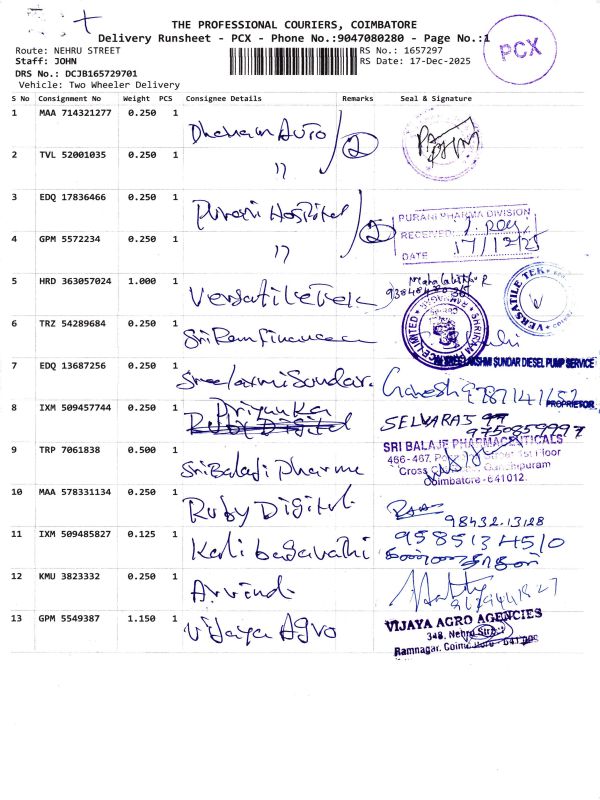 THE PROFESSIONAL COURIERS, COIMBATORE
Delivery Runsheet - PCX - Phone No.:9047080280 - Page No.:1
PCX
Route: NEHRU STREET
RS No.: 1657297
Staff: JOHN
RS Date: 17-Dec-2025
DRS No.: DCJB165729701
Vehicle: Two Wheeler Delivery
S No Consignment No Weight PCS Consignee Details Remarks Seal & Signature
1 MAA 714321277 0.250 1 Dhanam Auto 2
2 TVL 52001035 0.250 1 "
3 EDQ 17836466 0.250 1 Purani Hospital 2
PURANI PHARMA DIVISION
RECEIVED:
4 GPM 5572234 0.250 1 "
DATE 17/12/25
5 HRD 363057024 1.000 1 Versatile Tek
VERSATILE TEK
6 TRZ 54289684 0.250 1 Sri Ram Finance
7 EDQ 13687256 0.250 1 Sree Laxmi Sundar.
LAKSHMI SUNDAR DIESEL PUMP SERVICE
Ganesh
PROPRIETOR
8 IXM 509457744 0.250 1 Priyanka
Ruby Digital
SELVARAJ
9750859997
9 TRP 7061838 0.500 1 Sri Balaji Pharma
SRI BALAJI PHARMACEUTICALS
466-467, 1st Floor
Cross Gandhipuram
Coimbatore - 641012.
10 MAA 578331134 0.250 1 Ruby Digital
98432-13128
11 IXM 509485827 0.125 1 Kali bagavathi
9585134510
12 KMU 3823332 0.250 1 Arvind
13 GPM 5549387 1.150 1 Vijaya Agro
VIJAYA AGRO AGENCIES
348, Nehru Street
Ramnagar, Coimbatore - 641 009